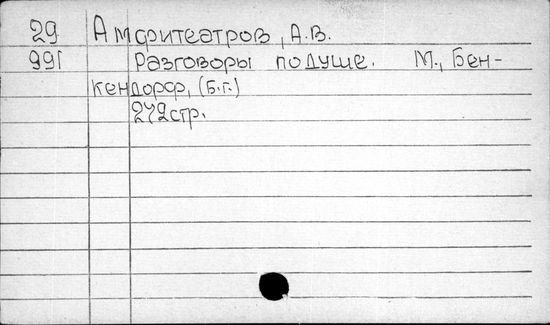 29 Амфитеатров, А.В.
991 Разговоры по душе. М., Бен-
кендорф, (б.г.)
272стр.